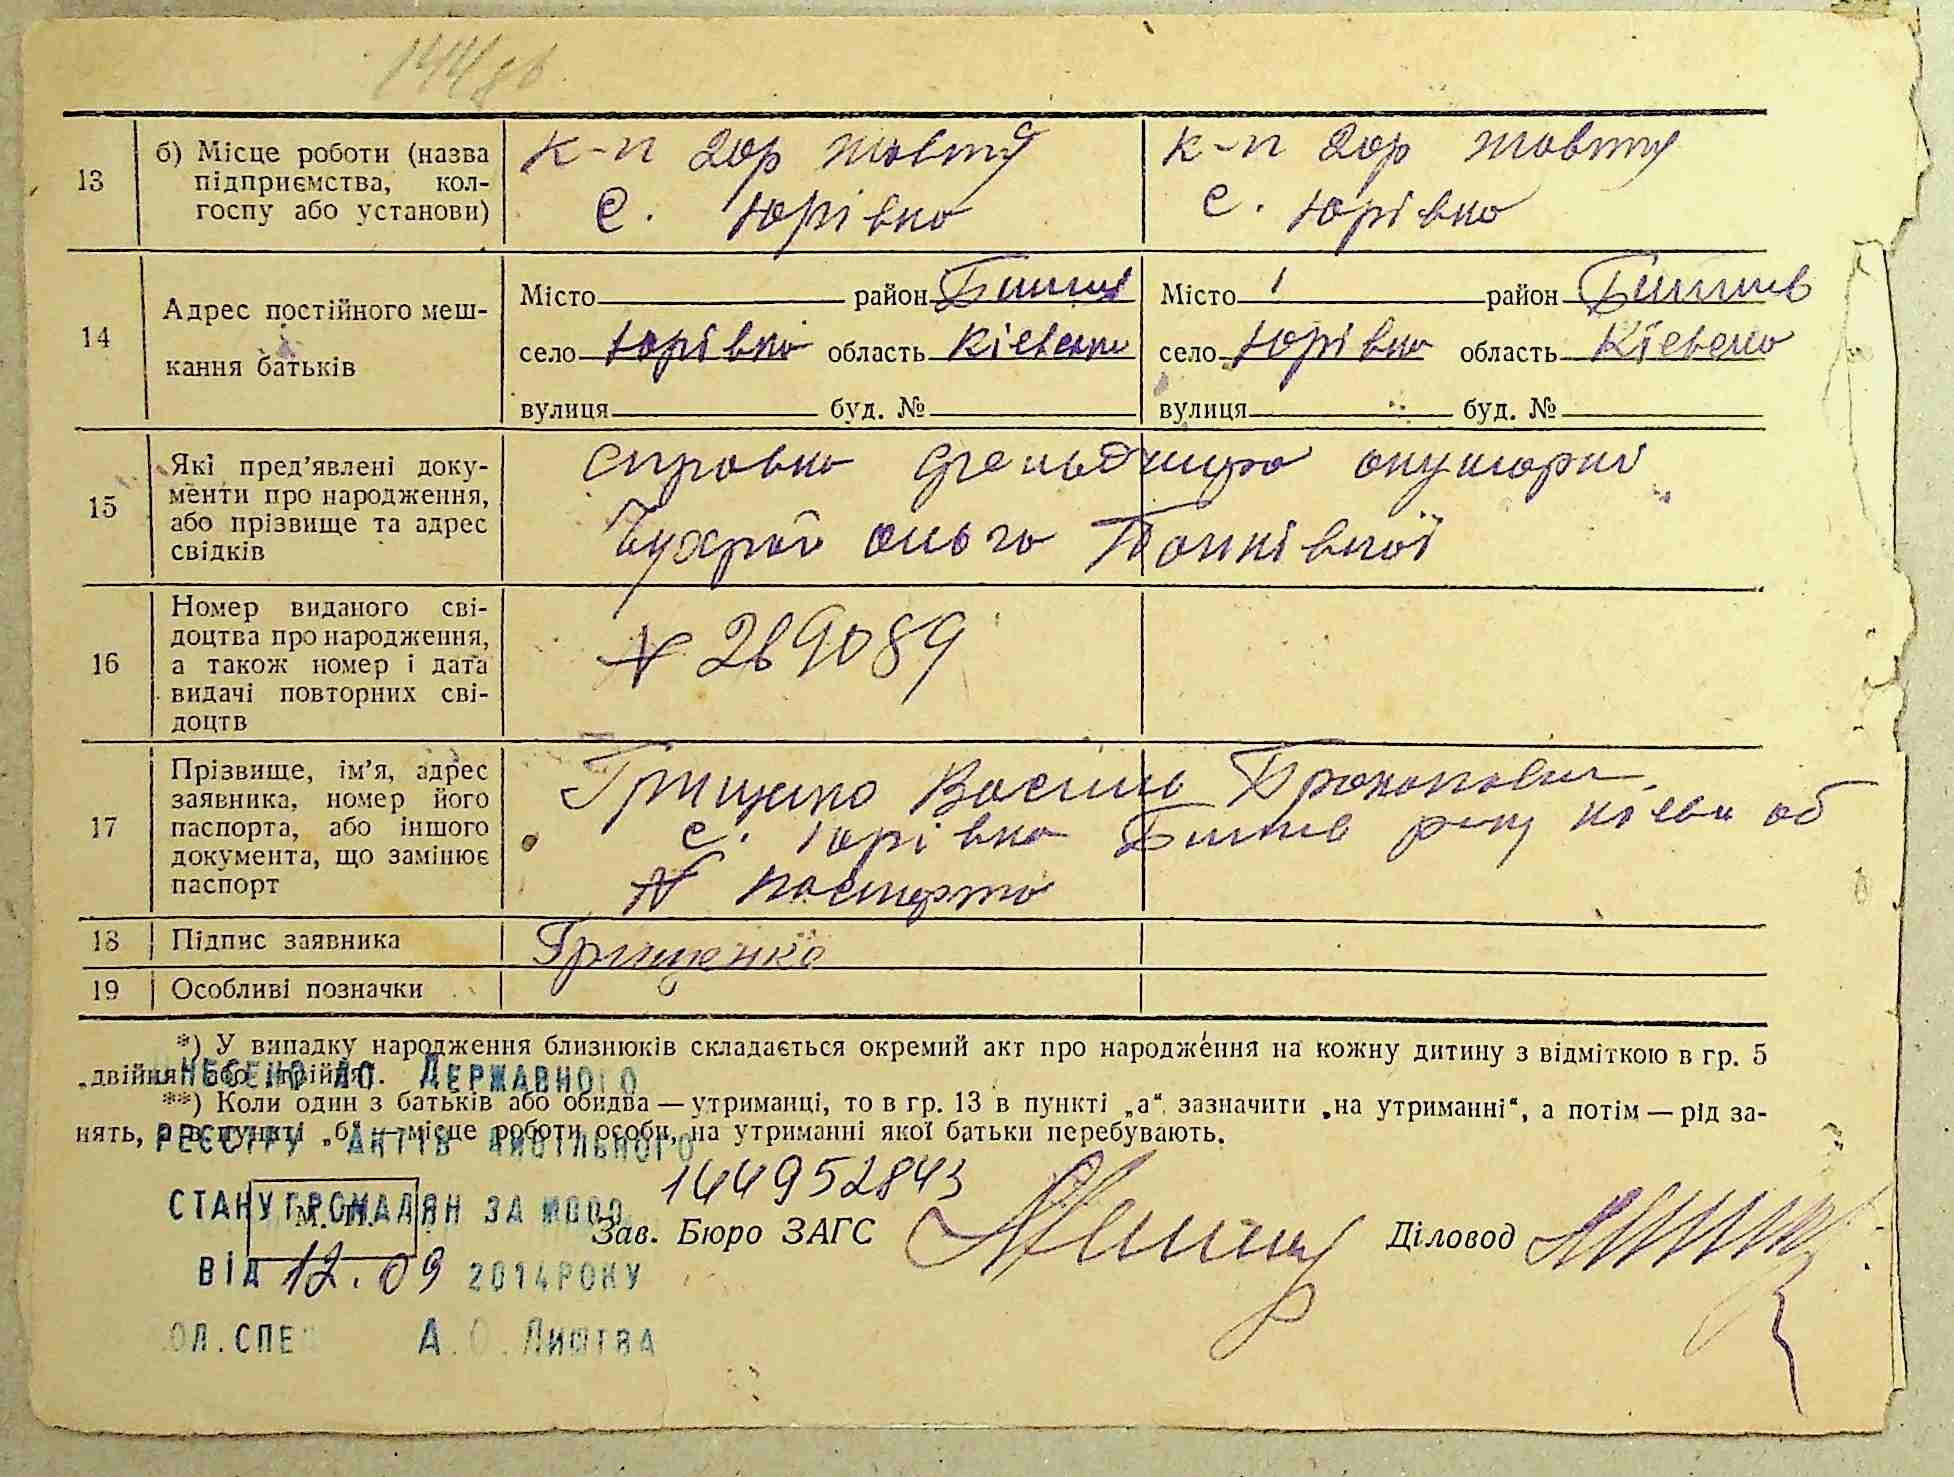 13
б) Місце роботи (назва
підприємства, кол-
госпу або установи)
к-п 20р жовтня
с. Юрівка
к-п 20р жовтня
с. Юрівка
14
Адрес постійного меш-
кання батьків
Місто район Бишив
село Юрівка область Кієвська
вулиця буд. №
Місто район Бишив
село Юрівка область Кієвська
вулиця буд. №
15
Які пред’явлені доку-
менти про народження,
або прізвище та адрес
свідків
справка фельдшера акушорки
Чухрай Ольга
16
Номер виданого сві-
доцтва про народження,
а також номер і дата
видачі повторних сві-
доцтв
N 269089
17
Прізвище, ім’я, адрес
заявника, номер його
паспорта, або іншого
документа, що замінює
паспорт
Грищенко Василь Прокопович
с. Юрівка Бишив р-ну Кієвск об
N паспорта
18
Підпис заявника
Грищенко
19
Особливі позначки
*) У випадку народження близнюків складається окремий акт про народження на кожну дитину з відміткою в гр. 5
„двійня“ або „трійня“.
**) Коли один з батьків або обидва — утриманці, то в гр. 13 в пункті „а“ зазначити „на утриманні“, а потім — рід за-
нять, а в пункті „б“ — місце роботи особи, на утриманні якої батьки перебувають.
ВНЕСЕНО ДО ДЕРЖАВНОГО
РЕЄСТРУ АКТІВ ЦИВІЛЬНОГО
СТАНУ ГРОМАДЯН ЗА №000
1449952843
М. П.
Зав. Бюро ЗАГС
Діловод
ВІД 12.09 2014РОКУ
ОЛ.СПЕЦ А.О.ЛИШТВА